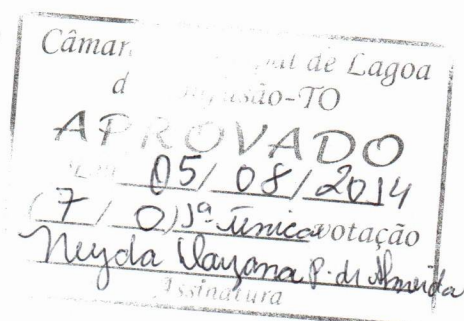 Câmar
de Lagoa
d são-TO
APROVADO
05/08/2014
(7/0) 1ª única votação
Neyda Dayana P. de Almeida
Assinatura